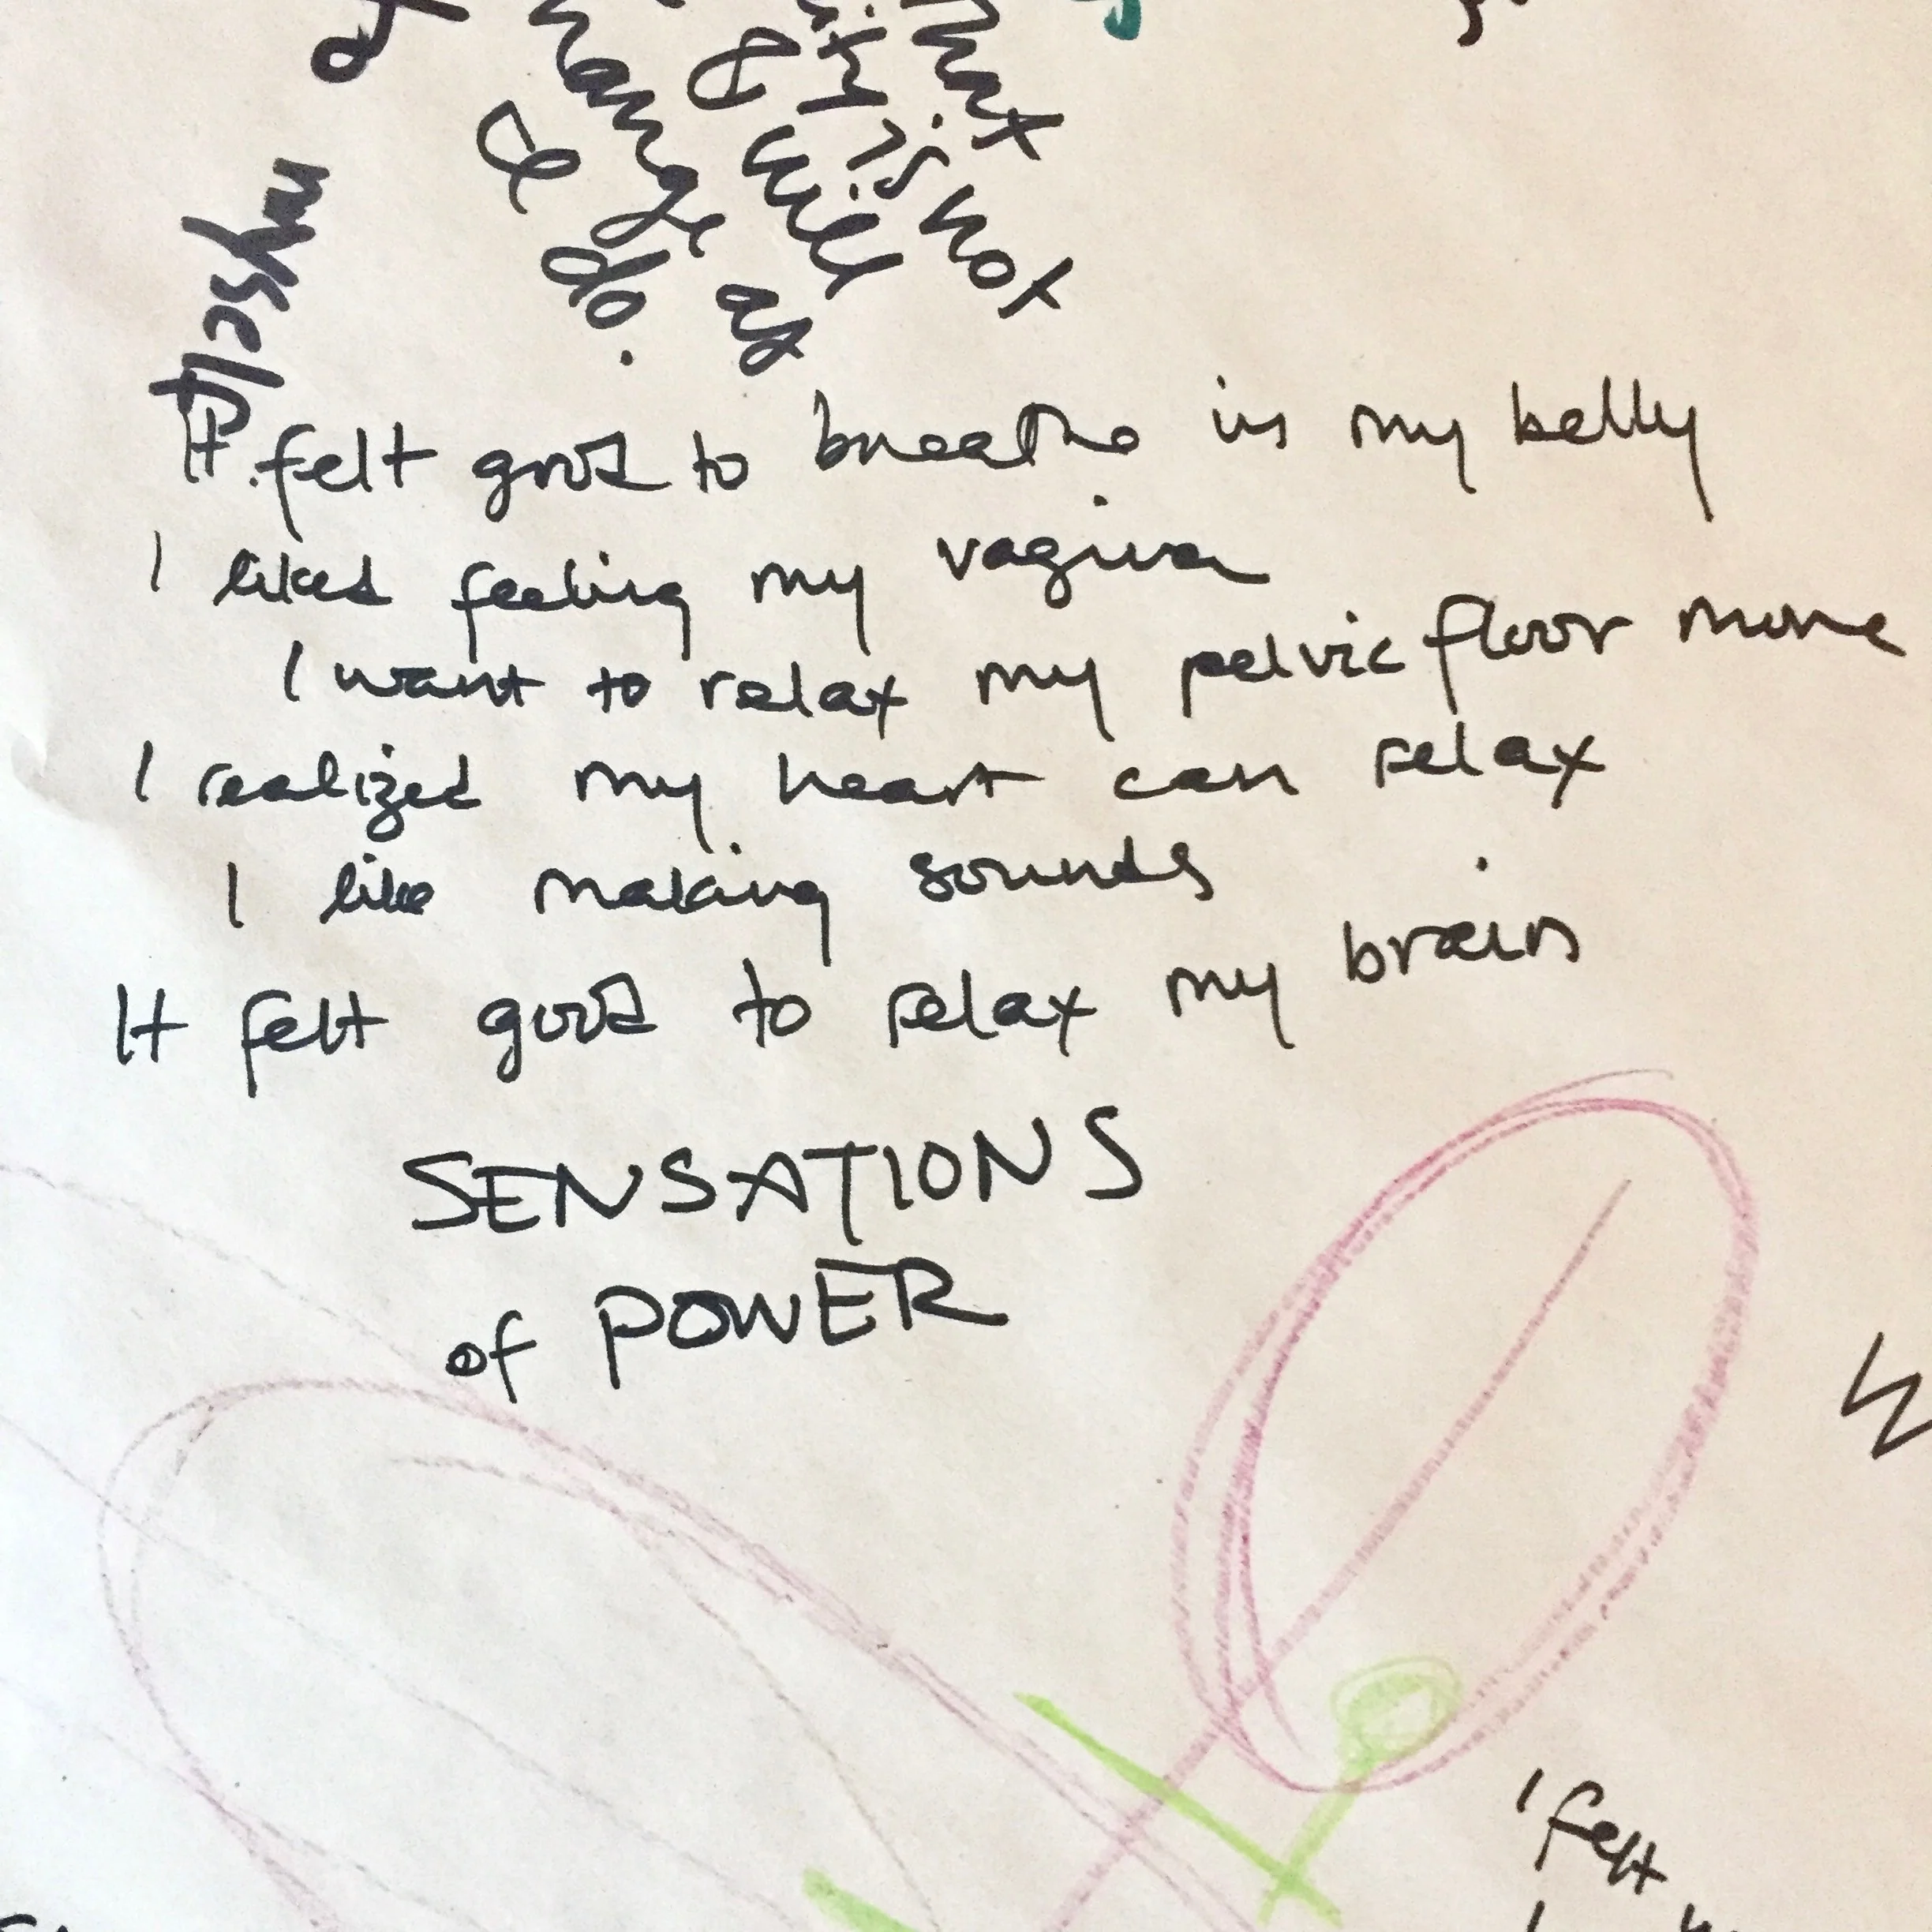 that
is not
& will
change as
I do.
myself
It felt good to breathe in my belly
I liked feeling my vagina
I want to relax my pelvic floor more
I realized my heart can relax
I like making sounds
It felt good to relax my brain
SENSATIONS
of POWER
I felt